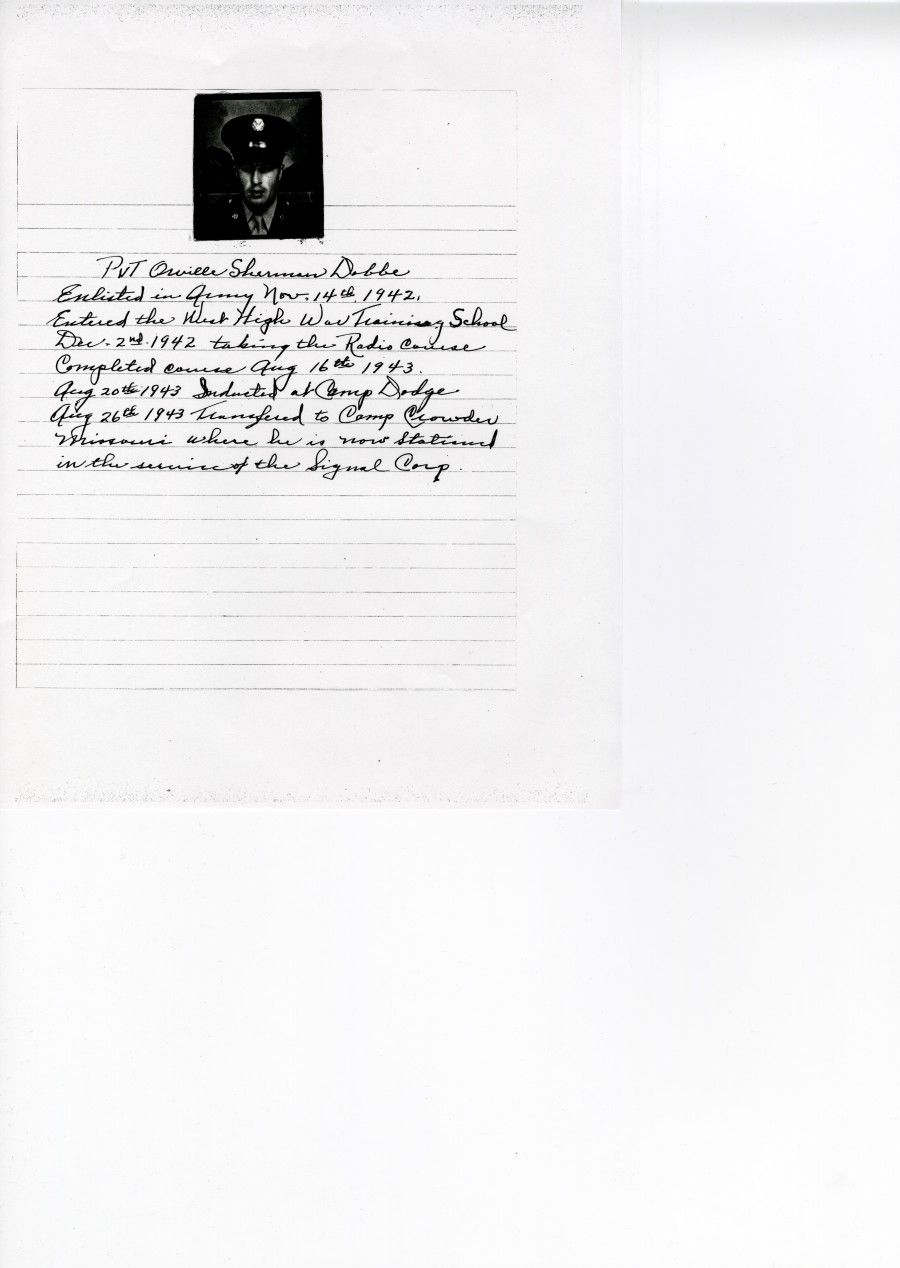 PvT Orville Sherman Dobbe
Enlisted in Army Nov. 14th, 1942.
Entered the West High War Training School
Dec. 2nd. 1942 taking the Radio Course
Completed course Aug 16th 1943.
Aug 20th 1943 Inducted at Camp Dodge
Aug 26th 1943 Transfered to Camp Crowder
Missouri where he is now stationed
in the service of the Signal Corp.